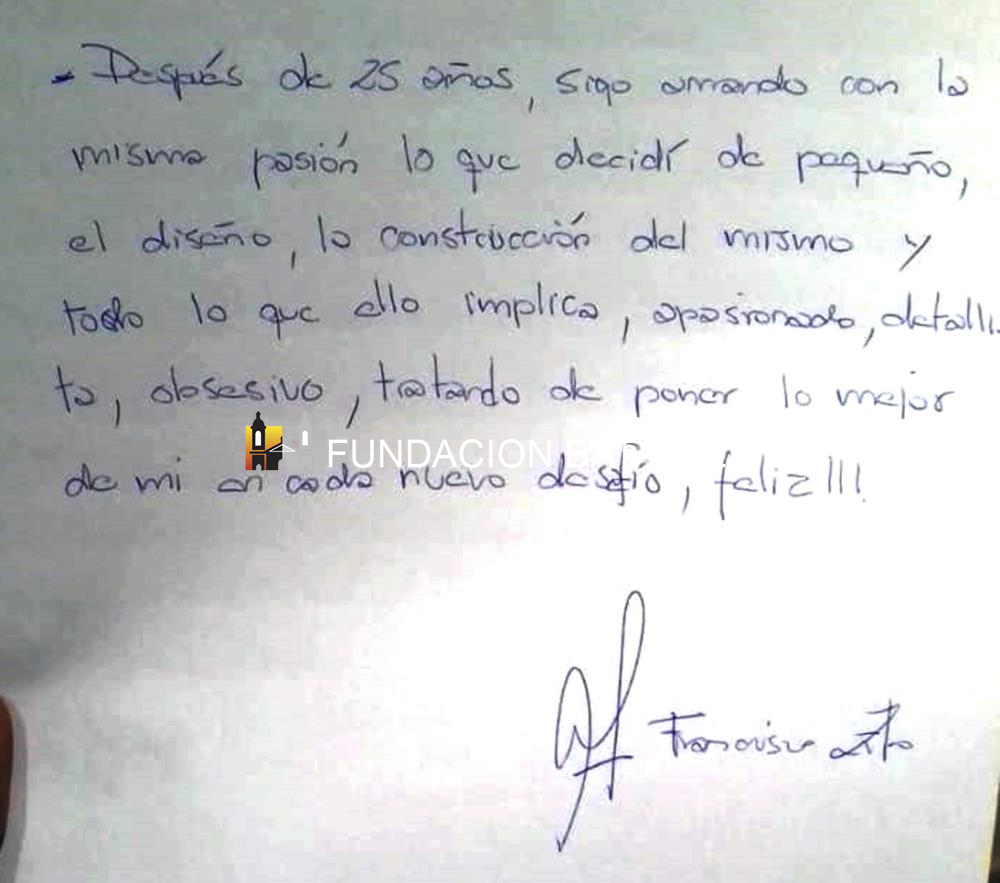 - Después de 25 años, sigo amando con la
misma pasión lo que decidí de pequeño,
el diseño, la construcción del mismo y
todo lo que ello implica, apasionado, detallis
ta, obsesivo, tratando de poner lo mejor
FUNDACION
de mi en cada nuevo desafío, feliz!!!
Francisco